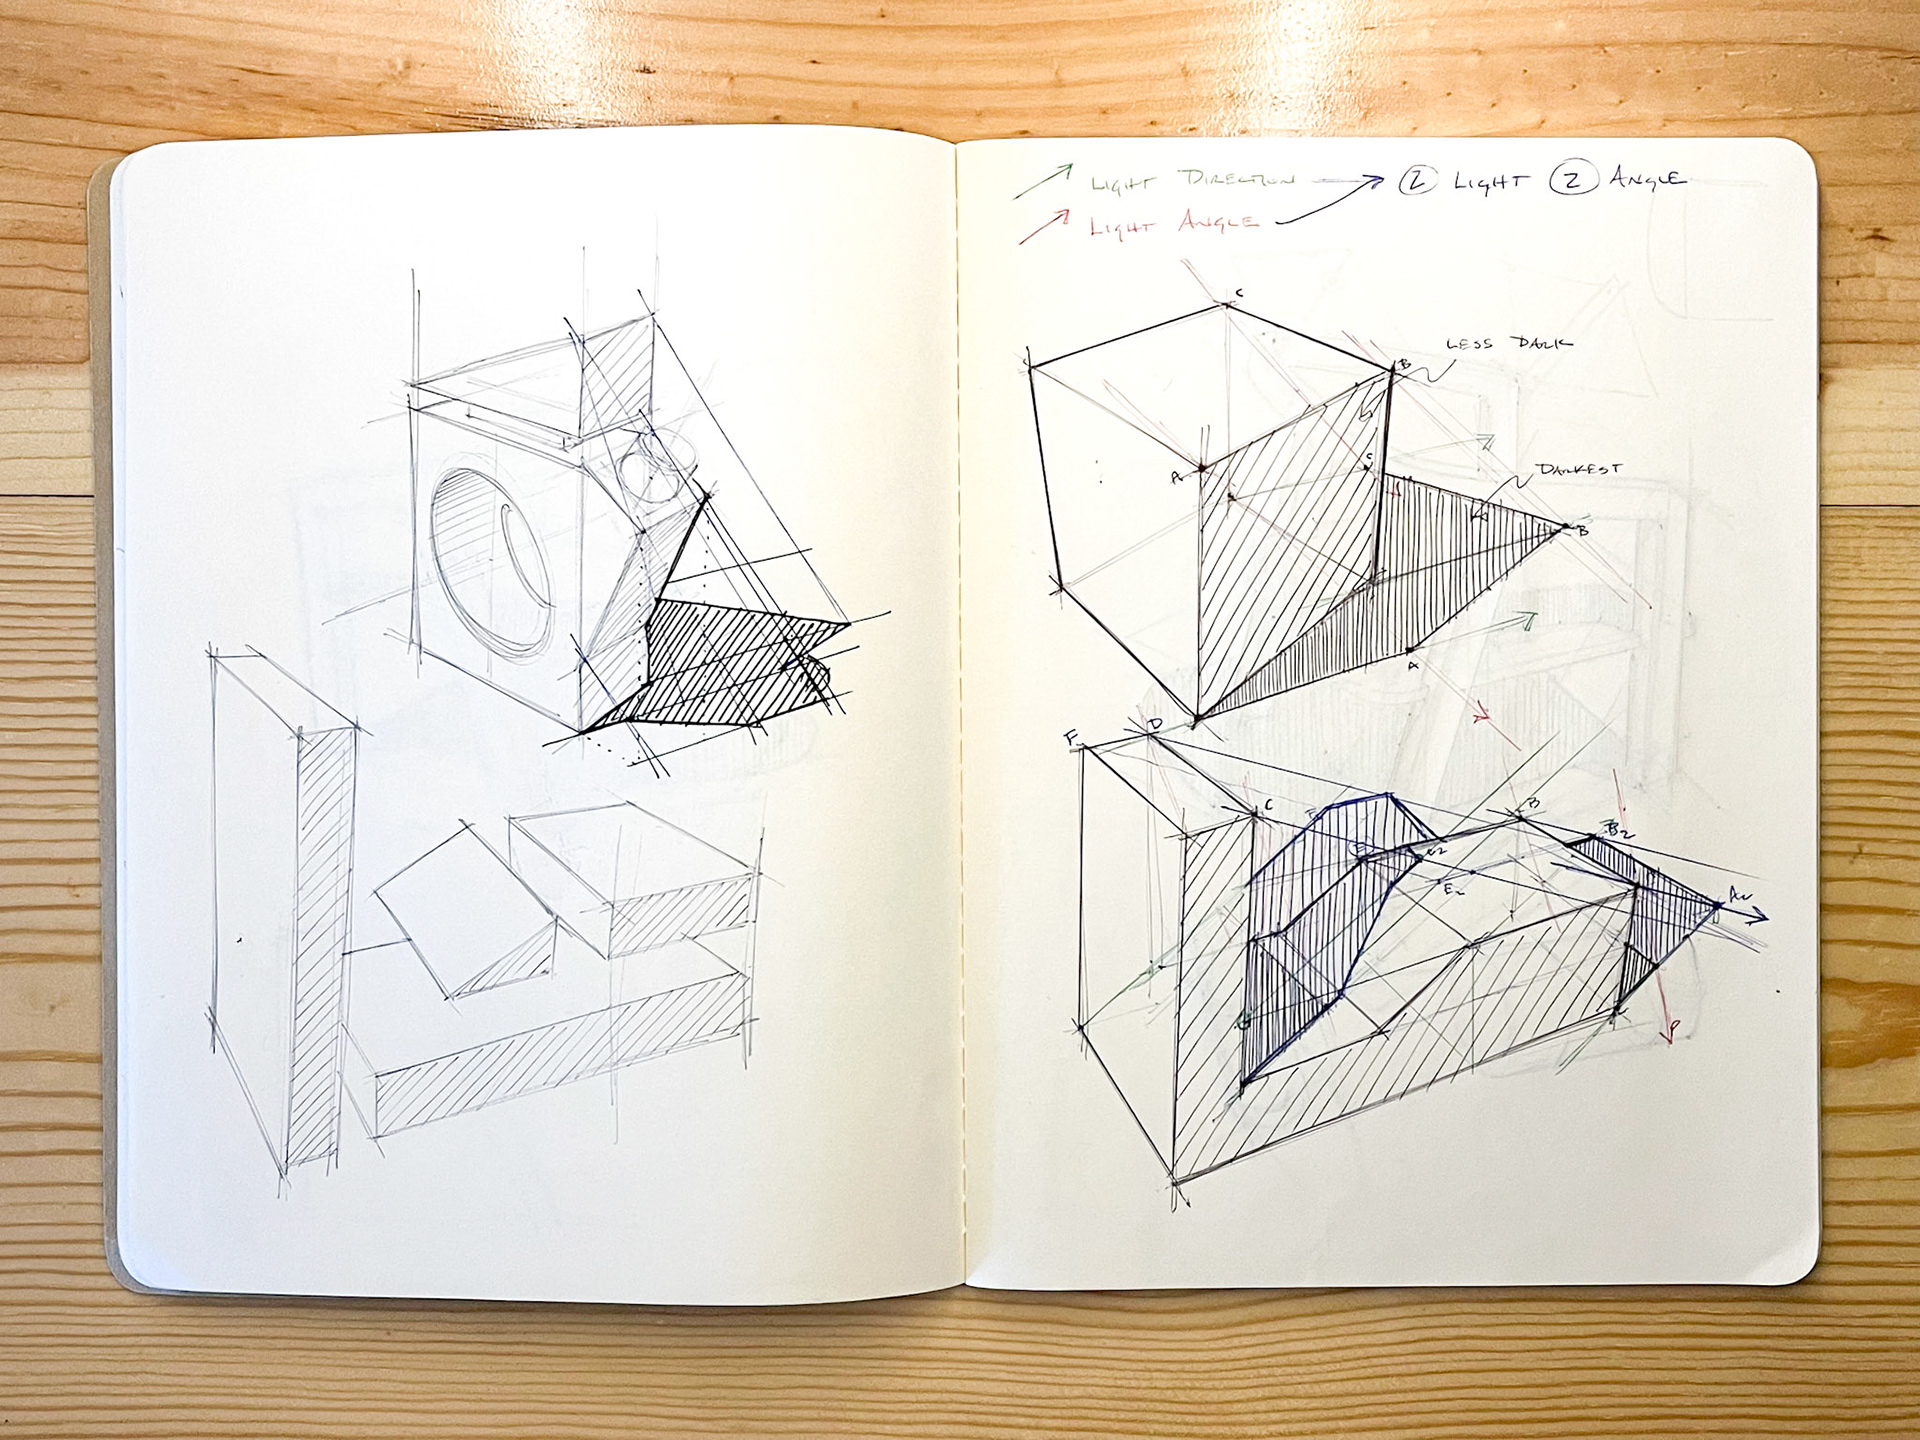 LIGHT DIRECTION → ② LIGHT ② ANGLE
LIGHT ANGLE
C
B
LESS DARK
A
C
DARKEST
B
A
F
D
C
B
B2
E2
A2